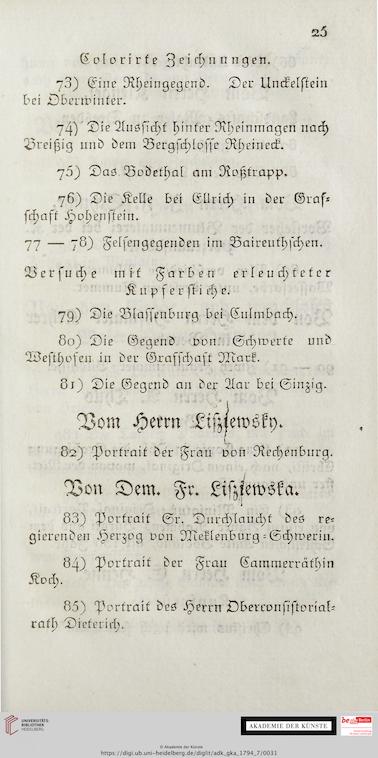 25
Colorirte Zeichnungen.
73) Eine Rheingegend. Der Unckelstein
bei Oberwinter.
74) Die Aussicht hinter Rheinmagen nach
Breißig und dem Bergschlosse Rheineck.
75) Das Bodethal am Roßtrapp.
76) Die Kelle bei Ellrich in der Graf-
schaft Hohenstein.
77 — 78) Felsengegenden im Baireuthschen.
Versuche mit Farben erleuchteter
Kupferstiche.
79) Die Blassenburg bei Culmbach.
80) Die Gegend von Schwerte und
Westhofen in der Grafschaft Mark.
81) Die Gegend an der Aar bei Sinzig.
Vom Herrn Liszewsky.
82) Portrait der Frau von Rechenburg.
Von Dem. Fr. Liszewska.
83) Portrait Sr. Durchlaucht des re-
gierenden Herzog von Meklenburg-Schwerin.
84) Portrait der Frau Cammerräthin
Koch.
85) Portrait des Herrn Oberconsistorial-
rath Dieterich.
UNIVERSITÄTS-
BIBLIOTHEK
HEIDELBERG
AKADEMIE DER KÜNSTE
be Berlin
© Akademie der Künste
https://digi.ub.uni-heidelberg.de/diglit/adk_gka_1794_7/0031